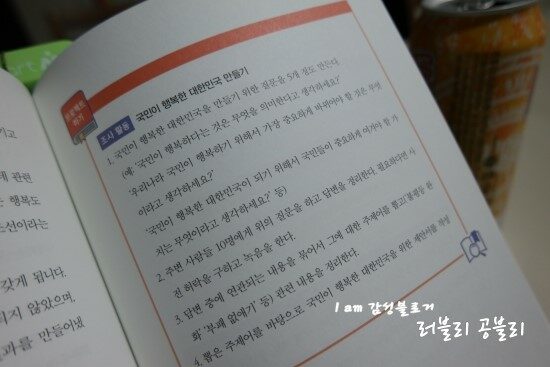 프로젝트
하기
조사 활동
국민이 행복한 대한민국 만들기
1. 국민이 행복한 대한민국을 만들기 위한 질문을 5개 정도 만든다.
(예: '국민이 행복하다는 것은 무엇을 의미한다고 생각하세요?'
'우리나라 국민이 행복하기 위해서 가장 중요하게 바뀌어야 할 것은 무엇
이라고 생각하세요?'
'국민이 행복한 대한민국이 되기 위해서 국민들이 중요하게 여겨야 할 가
치는 무엇이라고 생각하세요?' 등)
2. 주변 사람들 10명에게 위의 질문을 하고 답변을 정리한다. 필요하다면 사
전 허락을 구하고 녹음을 한다.
3. 답변 중에 연관되는 내용을 묶어서 그에 대한 주제어를 뽑고('불평등 완
화' '부패 없애기' 등) 관련 내용을 정리한다.
4. 뽑은 주제어를 바탕으로 국민이 행복한 대한민국을 위한 제안서를 작성
관련
행복도
조선이라는
갖게 됩니다.
되지 않았으며,
과를 만들어냈
I am 감성블로거
러블리 공블리